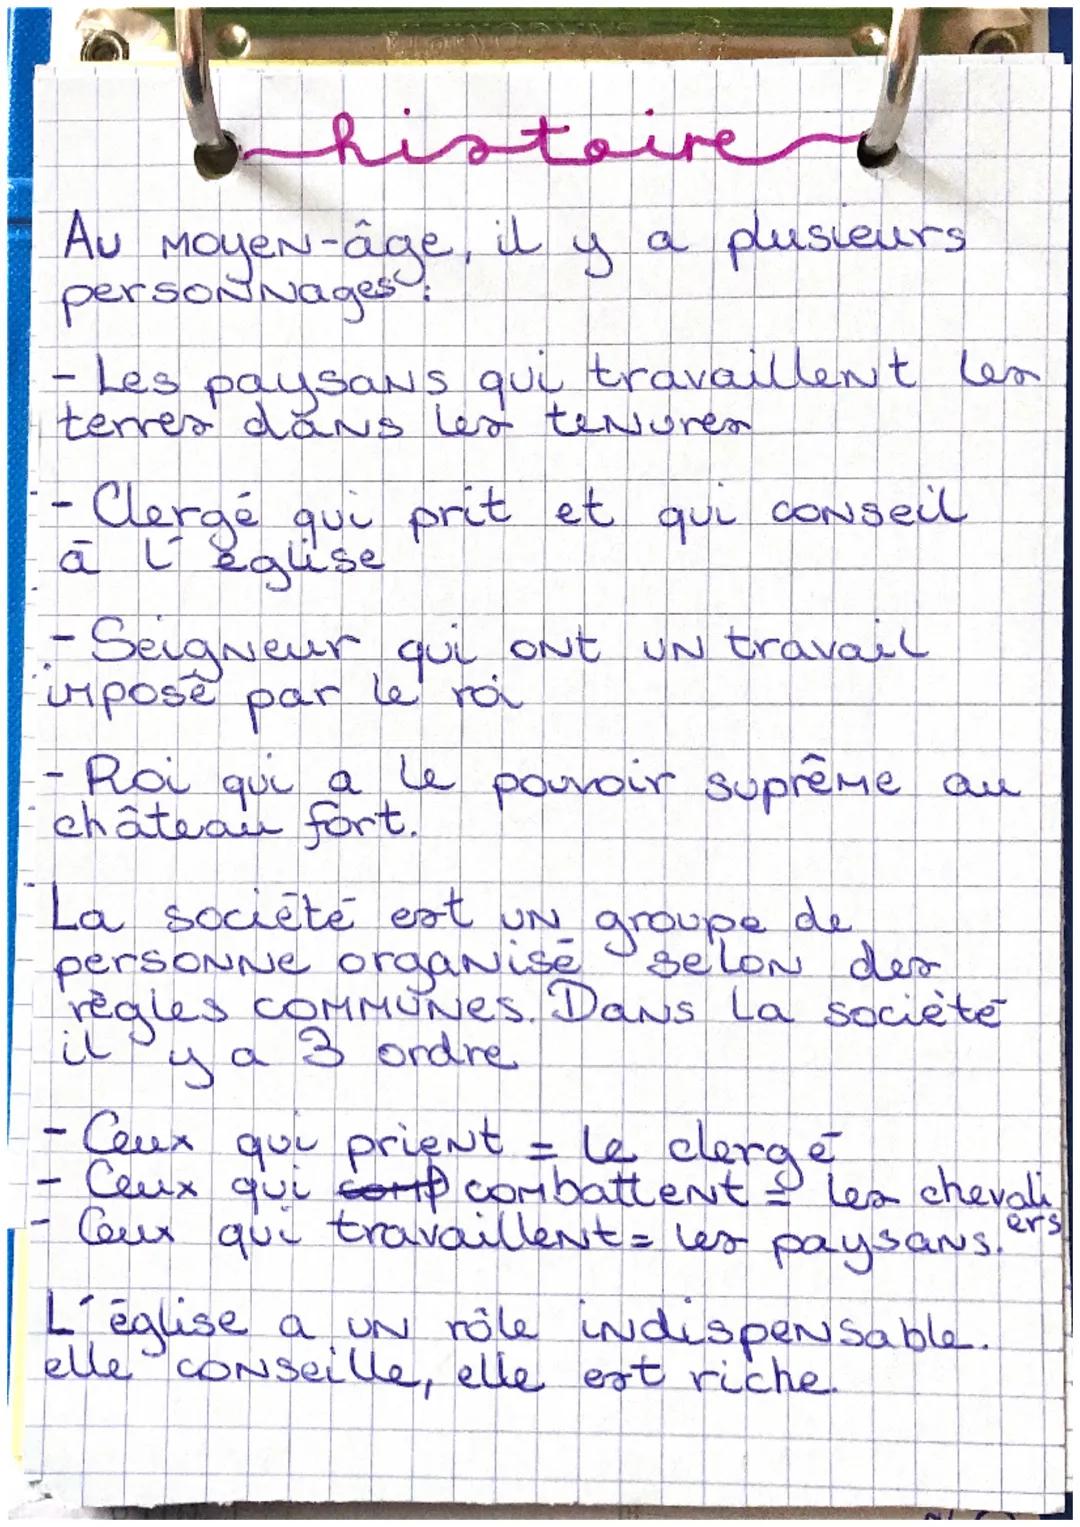 histoire
Au Moyen-âge, il y a plusieurs
personnages :
- Les paysans qui travaillent les
terres dans les tenures
- Clergé qui prit et qui conseil
à l'église
- Seigneur qui ont un travail
imposé par le roi
- Roi qui a le pouvoir suprême au
château fort.
La société est un groupe de
personne organisé selon des
règles communes. Dans la société
il y a 3 ordre
- Ceux qui prient = le clergé
- Ceux qui comp combattent = les chevaliers
- Ceux qui travaillent = les paysans.
L'église a un rôle indispensable.
elle conseille, elle est riche.